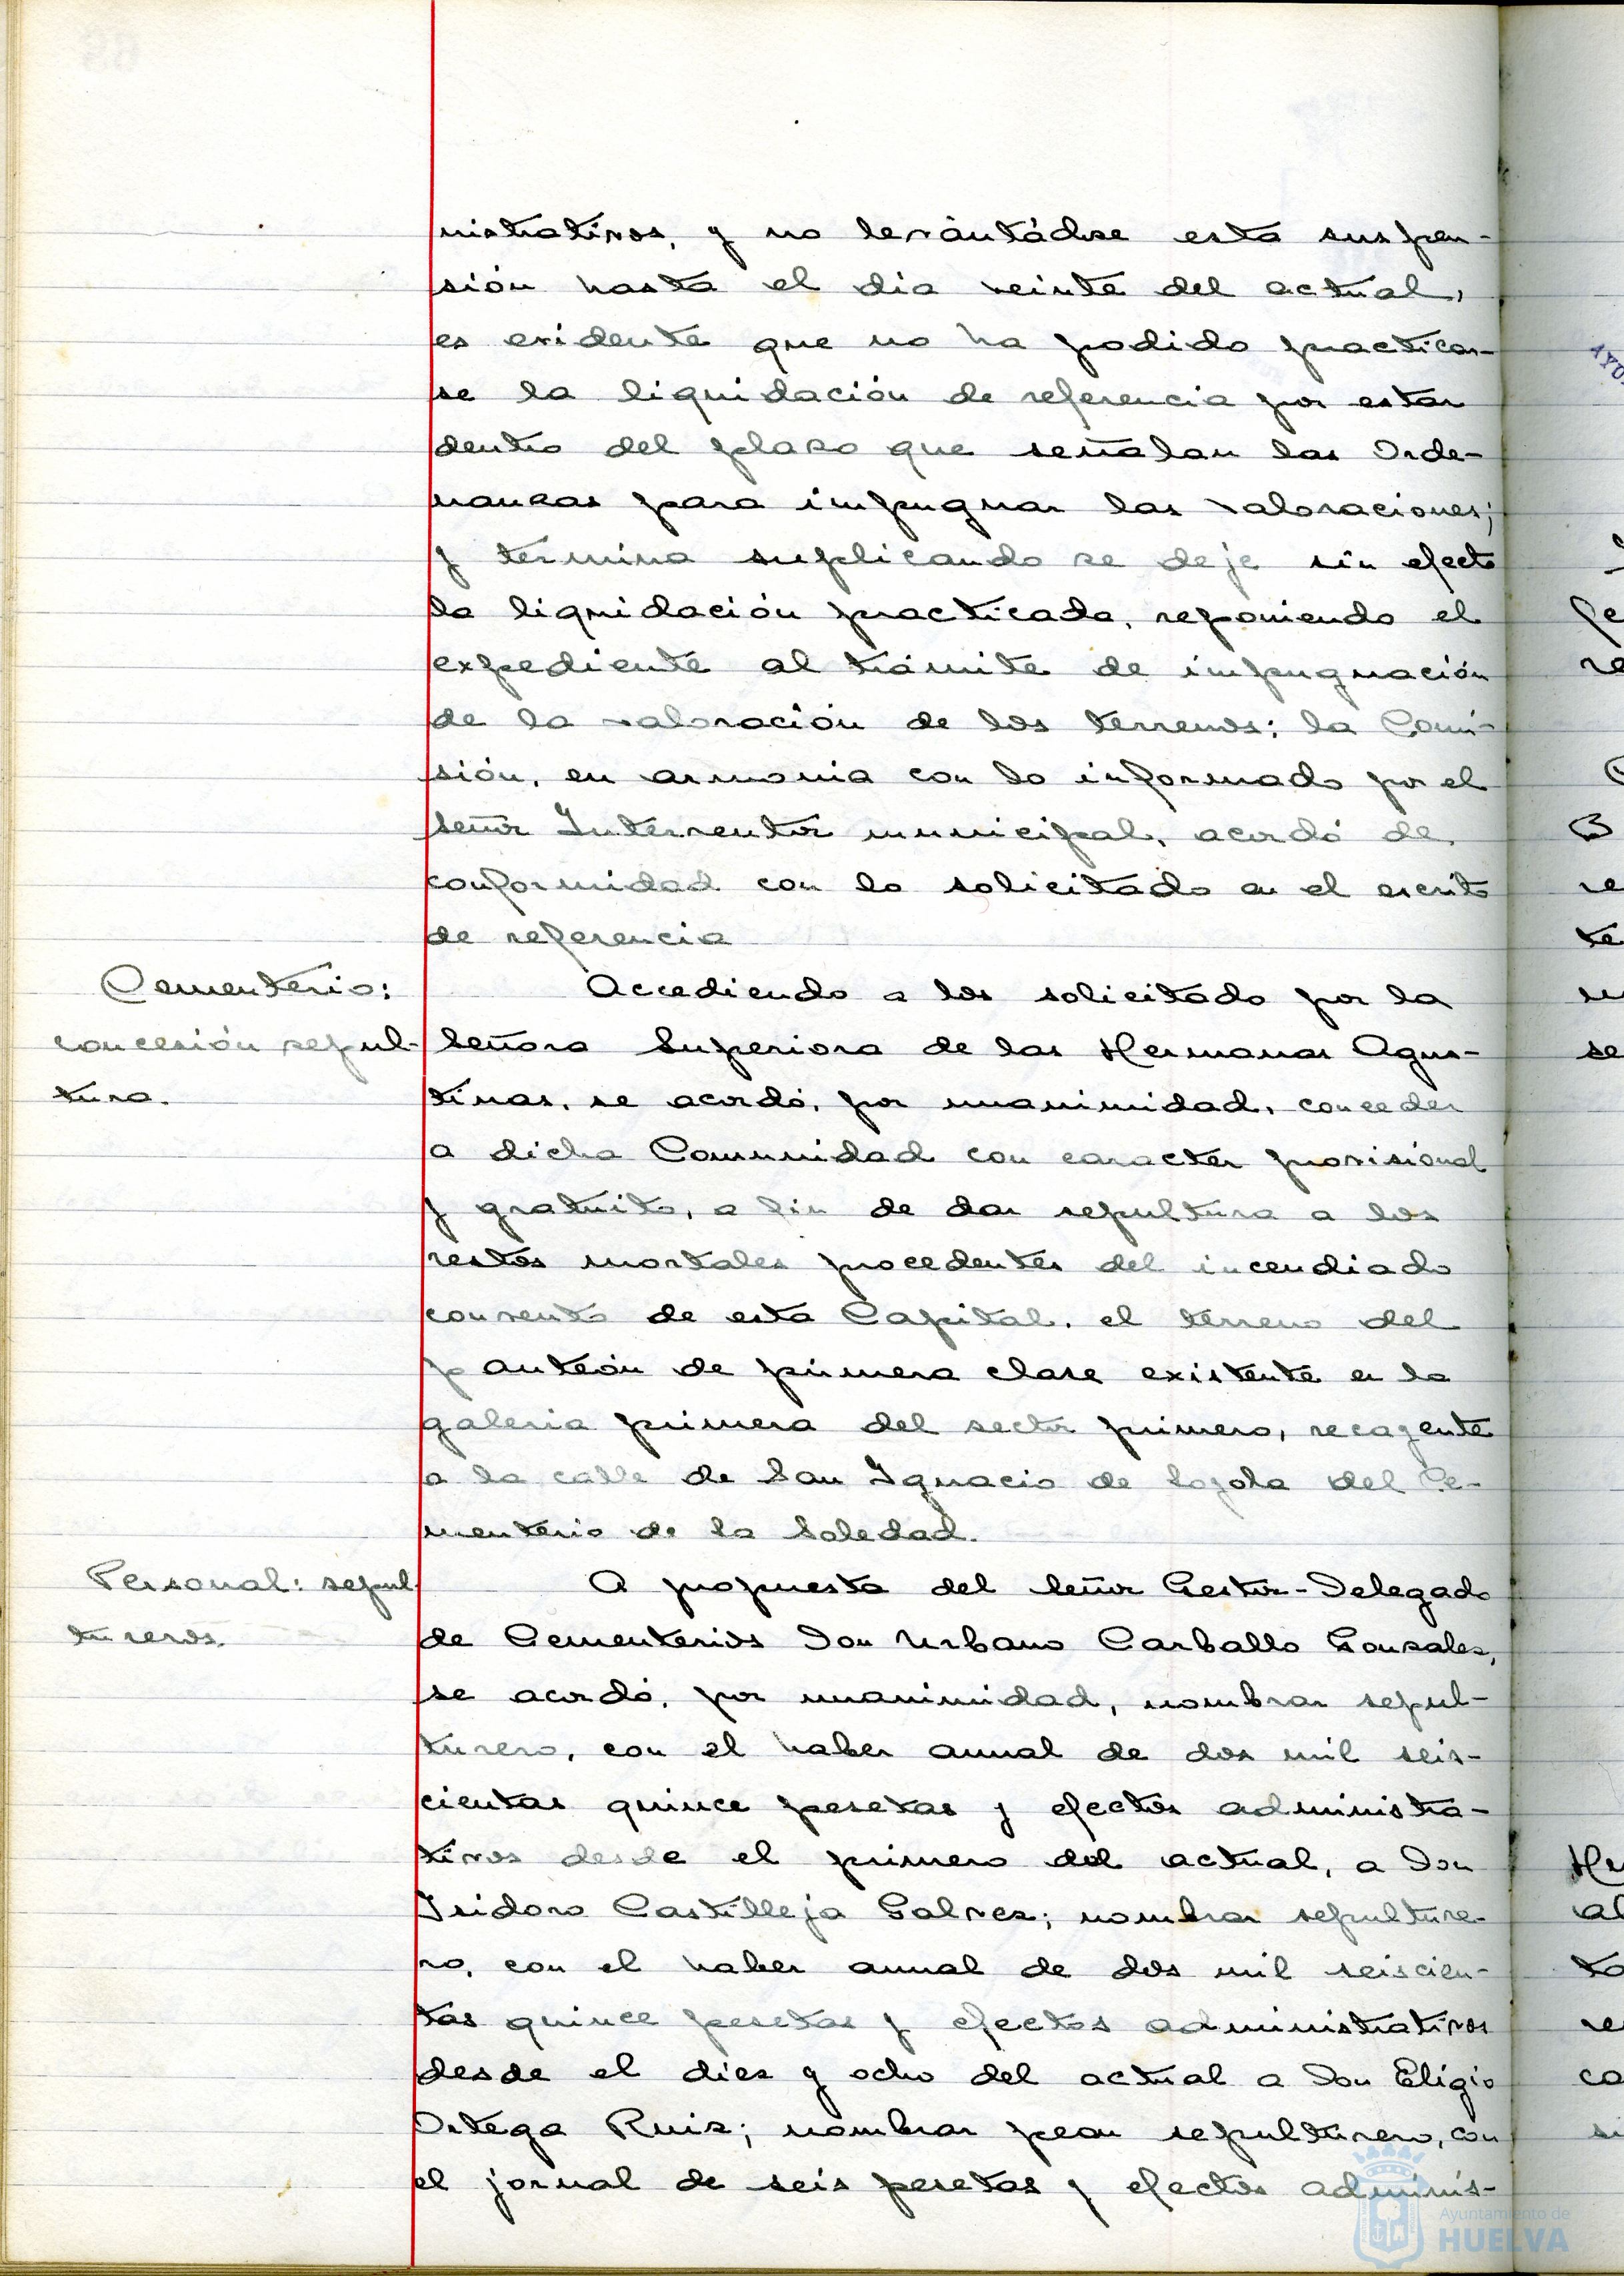 nistrativos, y no levántádose esta suspen-
sión hasta el dia veinte del actual,
es evidente que no ha podido practicar-
se la liquidación de referencia por estar
dentro del plazo que señalan las Orde-
nanzas para impugnar las valoraciones;
y termina suplicando se deje sin efecto
la liquidación practicada, reponiendo el
expediente al trámite de impugnación
de la valoración de los terrenos; la Comi-
sión, en armonia con lo informado por el
Señor Interventor municipal, acordó de
conformidad con lo solicitado en el escrito
de referencia
Cementerio:
concesión sepul-
tura.
Accediendo a los solicitado por la
Señora Superiora de las Hermanas Agus-
tinas, se acordó, por unanimidad, conceder
a dicha Comunidad con caracter provisional
y gratuito, a fin de dar sepultura a los
restos mortales procedentes del incendiado
convento de esta Capital, el terreno del
panteón de primera clase existente en la
galeria primera del sector primero, recayente
a la calle de San Ignacio de Loyola del Ce-
menterio de la Soledad.
Personal: sepul-
tureros.
A propuesta del Señor Gestor-Delegado
de Cementerios Don Urbano Carballo Gonzalez,
se acordó, por unanimidad, nombrar sepul-
turero, con el haber anual de dos mil seis-
cientas quince pesetas y efectos administra-
tivos desde el primero del actual, a Don
Isidoro Castilleja Galvez; nombrar sepulture-
ro, con el haber anual de dos mil seiscien-
tas quince pesetas y efectos administrativos
desde el diez y ocho del actual a Don Eligio
Ortega Ruiz; nombrar peon sepulturero, con
el jornal de seis pesetas y efectos adminis-
Ayuntamiento de
HUELVA